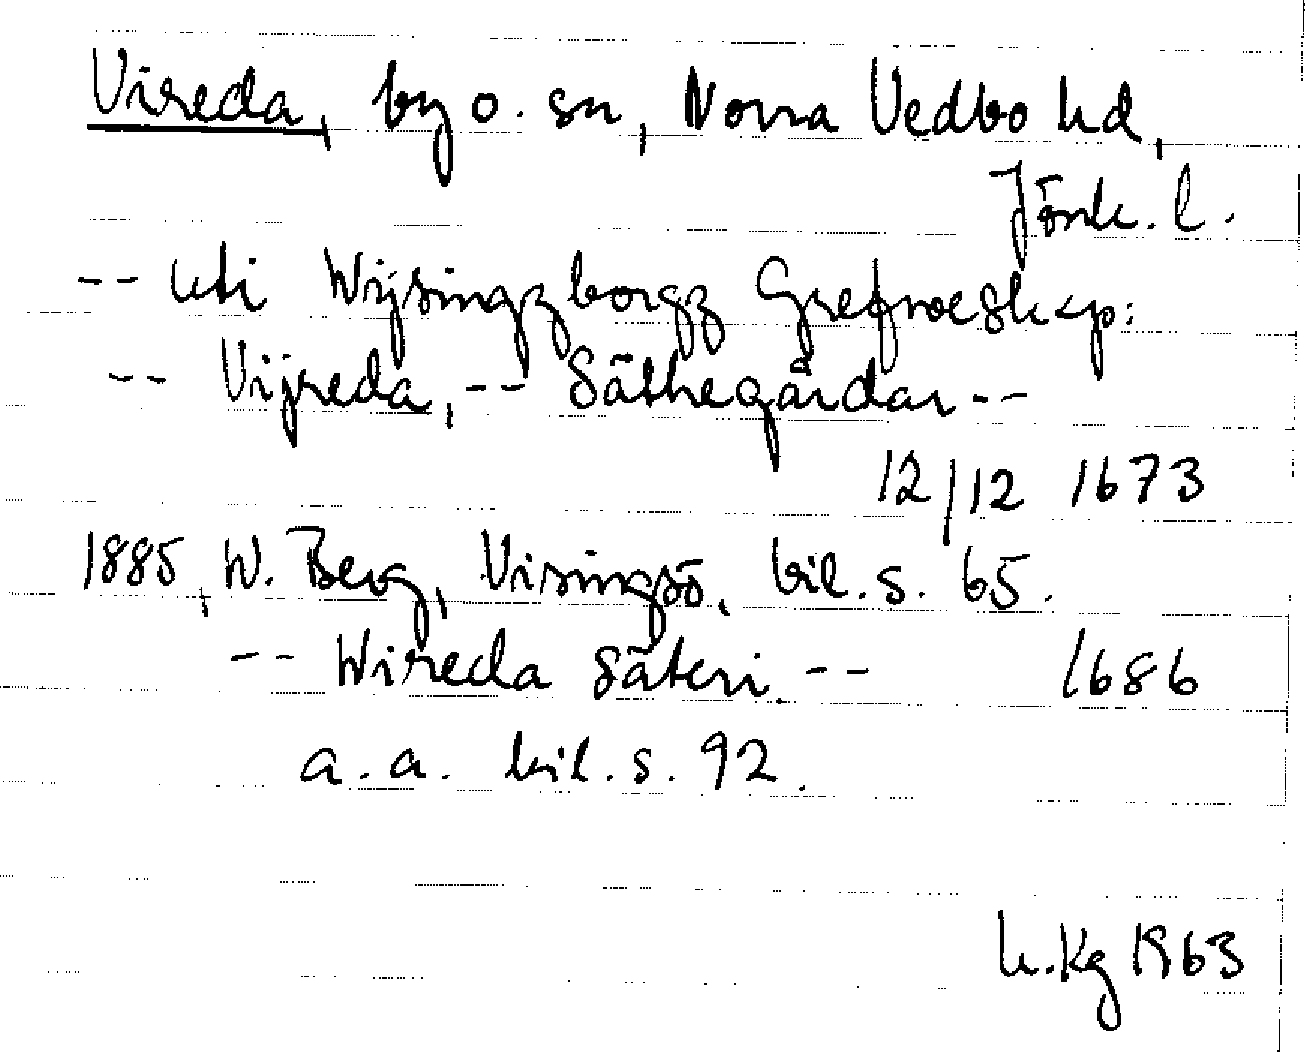 Vireda, by o. sn, Norra Vedbo hd,
Jönk. l.
-- uti Wijsingzborgz Grefweskap:
-- Vijreda, -- Säthegårdar --
12/12 1673
1885, W. Berg, Visingsö, bil. s. 65.
-- Wireda säteri. -- 1686
a.a. bil. s. 92.
h.Kg 1963